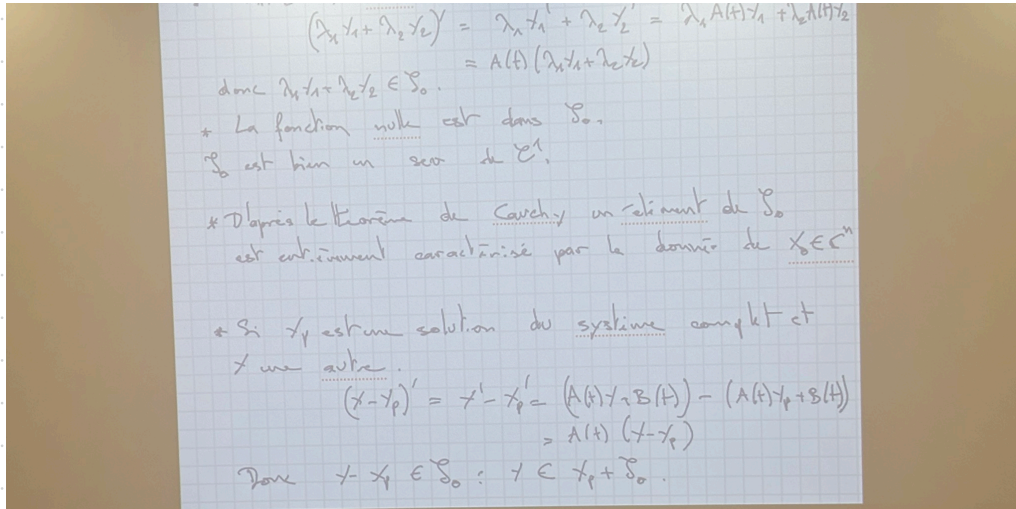 (λ₁Y₁ + λ₂Y₂)' = λ₁Y₁' + λ₂Y₂' = λ₁A(t)Y₁ + λ₂A(t)Y₂
= A(t)(λ₁Y₁ + λ₂Y₂)
donc λ₁Y₁ + λ₂Y₂ ∈ S₀.
* La fonction nulle est dans S₀.
S₀ est bien un sev de C¹.
* D'après le théorème de Cauchy un élément de S₀
est entièrement caractérisé par la donnée de Y₀ ∈ ℂⁿ
* Si Yp est une solution du système complet et
Y une autre.
(Y-Yp)' = Y' - Yp' = (A(t)Y + B(t)) - (A(t)Yp + B(t))
= A(t) (Y-Yp)
Donc Y - Yp ∈ S₀ : Y ∈ Yp + S₀.